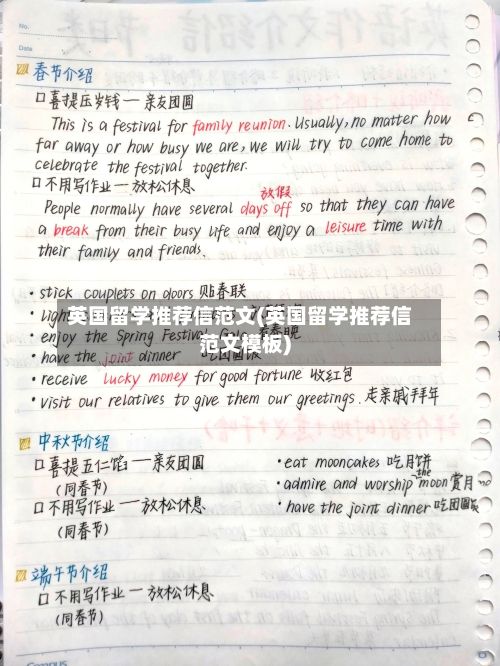 No.
Date
春节介绍
口喜提压岁钱一亲友团圆
This is a festival for family reunion. Usually, no matter how
far away or how busy we are, we will try to come home to
celebrate the festival together.
口不用写作业一放松休息
放假
People normally have several days off so that they can have
a break from their busy life and enjoy a leisure time with
their family and friends.
• stick couplets on doors 贴春联
• light
英国留学推荐信范文(英国留学推荐信
范文模板)
• enjoy the Spring Festival Gala 看春晚
• have the joint dinner 吃团圆饭
• receive lucky money for good fortune 收红包
• visit our relatives to give them our greetings. 走亲戚拜年
中秋节介绍
口喜提五仁馅一亲友团圆
(同春节)
口不用写作业一放松休息
(同春节)
• eat mooncakes 吃月饼
• admire and worship the moon 赏月
• have the joint dinner 吃团圆饭
端午节介绍
口不用写作业一放松休息
(同春节)
Campus